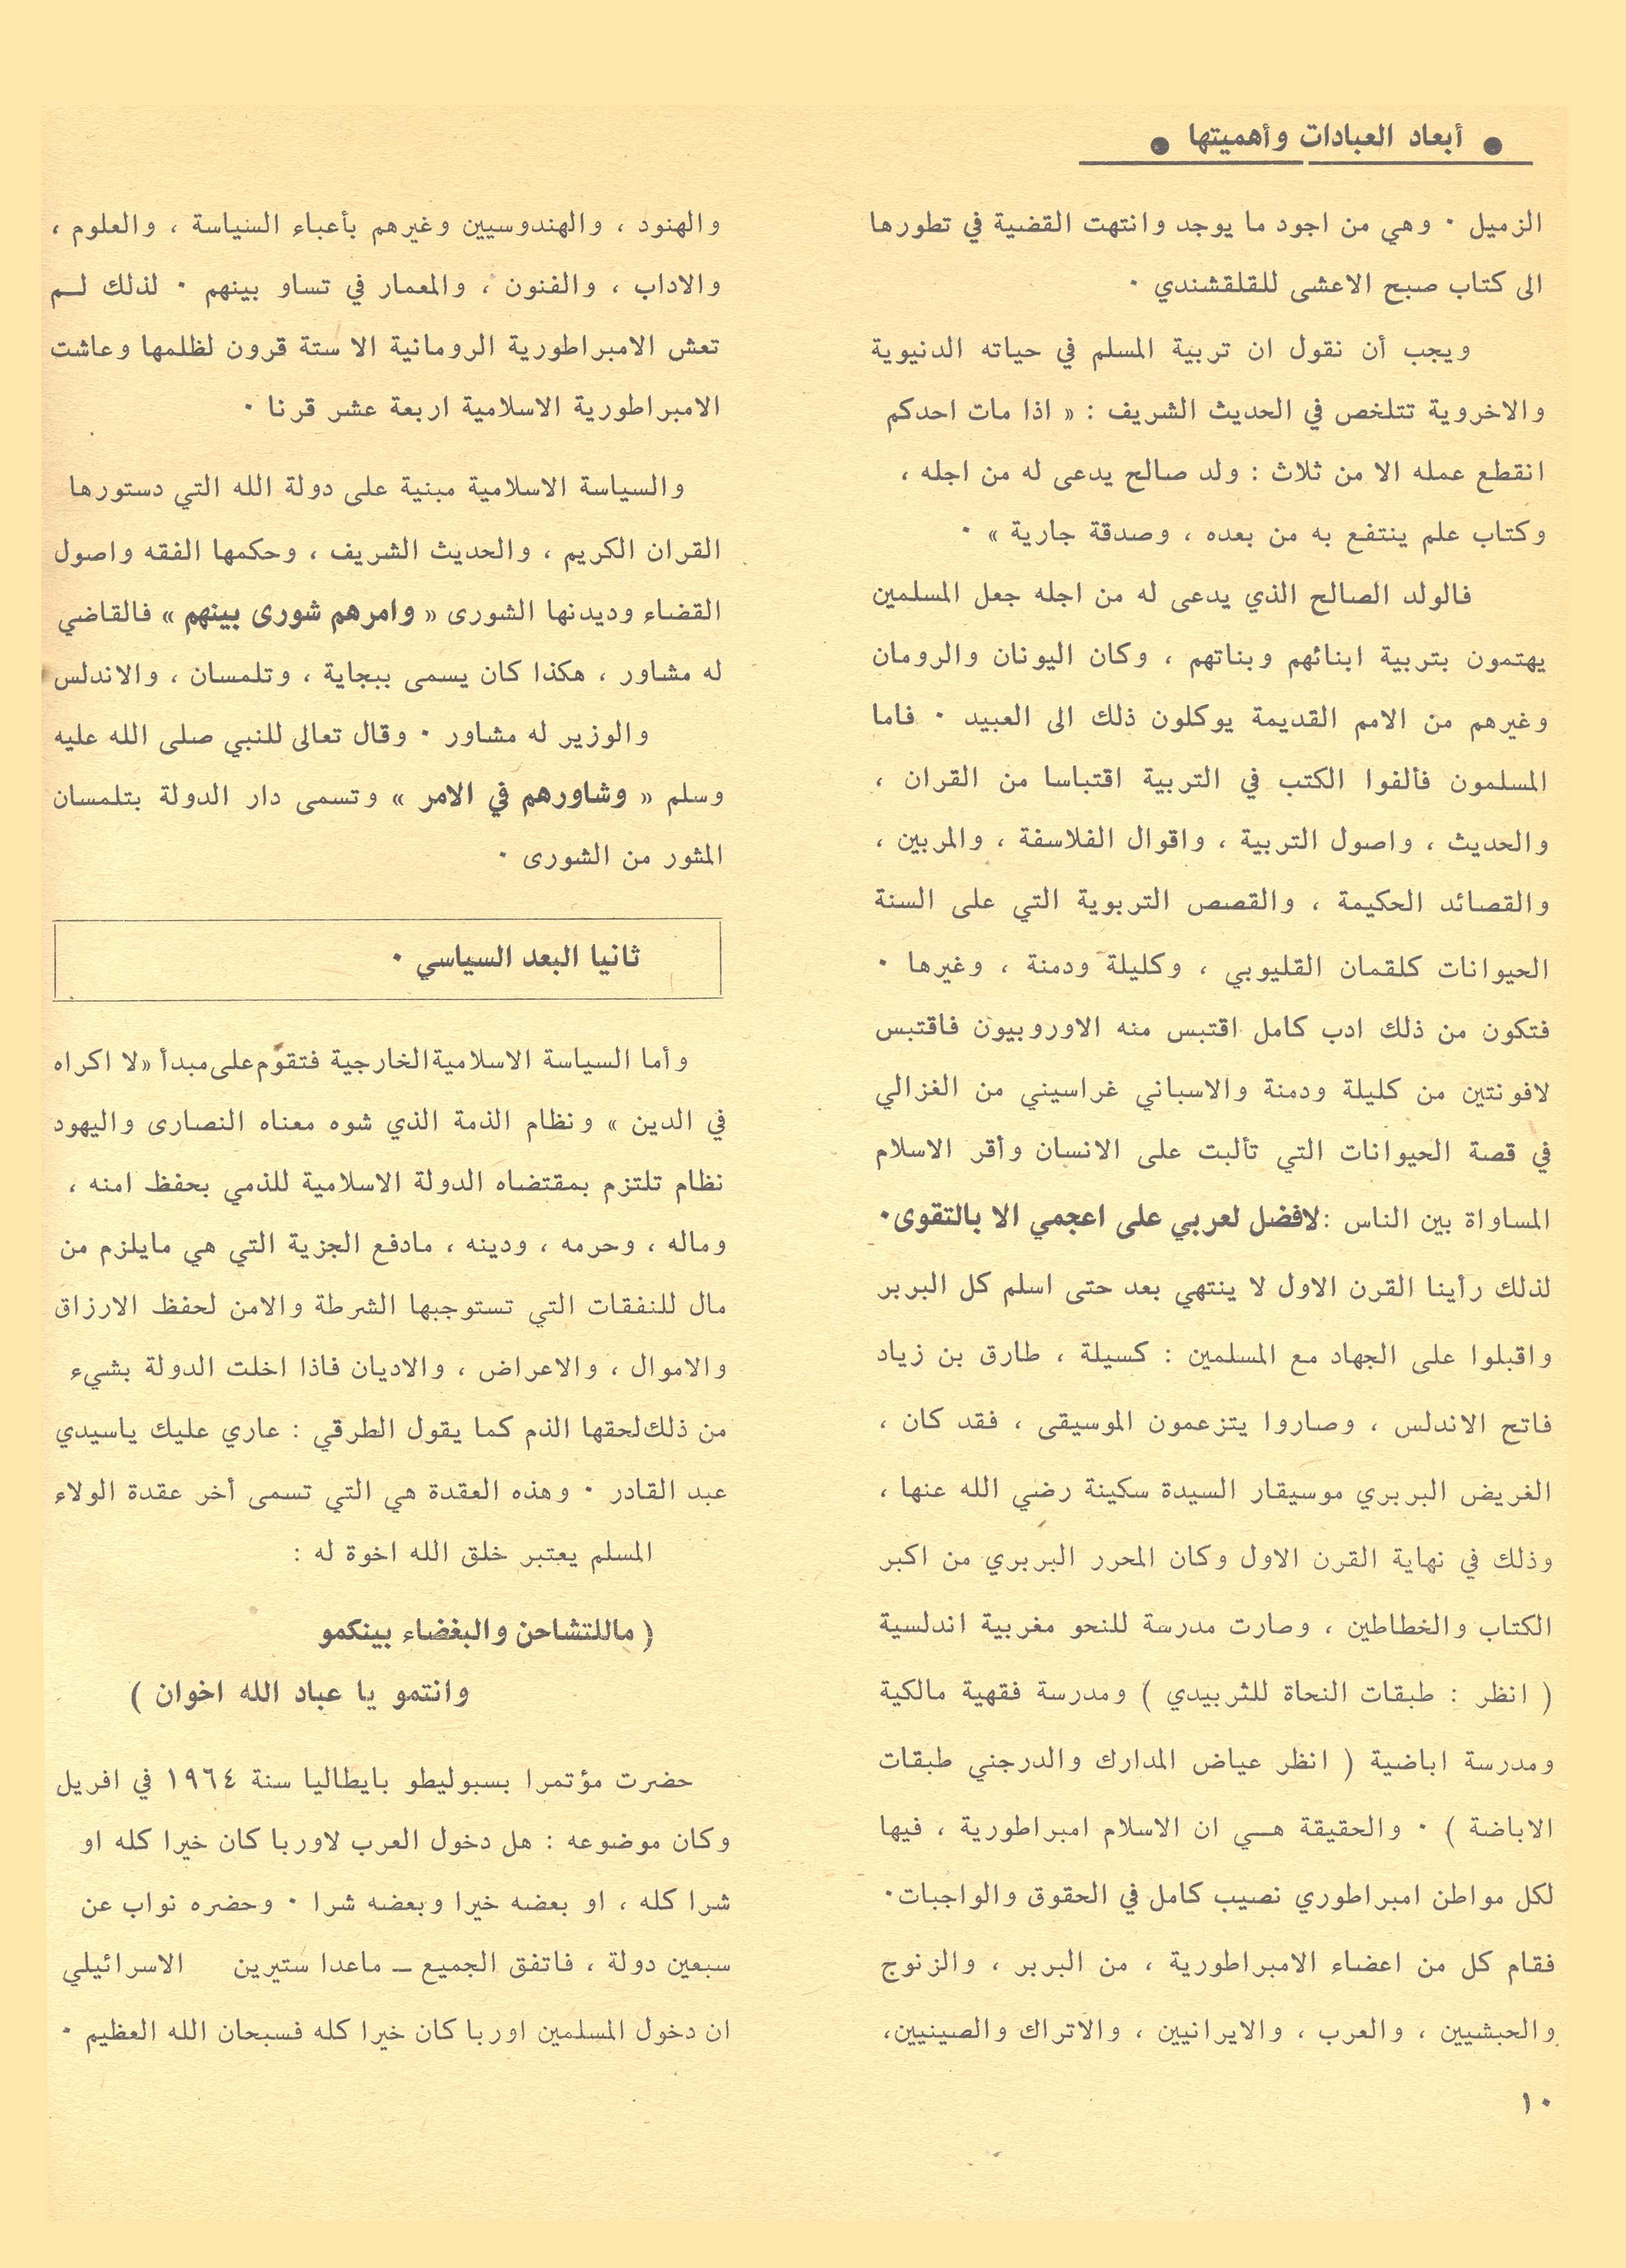 ● أبعاد العبادات وأهميتها ●
الزميل ٠ وهي من اجود ما يوجد وانتهت القضية في تطورها
الى كتاب صبح الاعشى للقلقشندي ٠
ويجب أن نقول ان تربية المسلم في حياته الدنيوية
والاخروية تتلخص في الحديث الشريف : « اذا مات احدكم
انقطع عمله الا من ثلاث : ولد صالح يدعى له من اجله ،
وكتاب علم ينتفع به من بعده ، وصدقة جارية » ٠
فالولد الصالح الذي يدعى له من اجله جعل المسلمين
يهتمون بتربية ابنائهم وبناتهم ، وكان اليونان والرومان
وغيرهم من الامم القديمة يوكلون ذلك الى العبيد ٠ فاما
المسلمون فألفوا الكتب في التربية اقتباسا من القران ،
والحديث ، واصول التربية ، واقوال الفلاسفة ، والمربين ،
والقصائد الحكيمة ، والقصص التربوية التي على السنة
الحيوانات كلقمان القليوبي ، وكليلة ودمنة ، وغيرها ٠
فتكون من ذلك ادب كامل اقتبس منه الاوروبيون فاقتبس
لافونتين من كليلة ودمنة والاسباني غراسيني من الغزالي
في قصة الحيوانات التي تألبت على الانسان وأقر الاسلام
المساواة بين الناس :لافضل لعربي على اعجمي الا بالتقوى٠
لذلك رأينا القرن الاول لا ينتهي بعد حتى اسلم كل البربر
واقبلوا على الجهاد مع المسلمين : كسيلة ، طارق بن زياد
فاتح الاندلس ، وصاروا يتزعمون الموسيقى ، فقد كان ،
الغريض البربري موسيقار السيدة سكينة رضي الله عنها ،
وذلك في نهاية القرن الاول وكان المحرر البربري من اكبر
الكتاب والخطاطين ، وصارت مدرسة للنحو مغربية اندلسية
( انظر : طبقات النحاة للثربيدي ) ومدرسة فقهية مالكية
ومدرسة اباضية ( انظر عياض المدارك والدرجني طبقات
الاباضة ) ٠ والحقيقة هـي ان الاسلام امبراطورية ، فيها
لكل مواطن امبراطوري نصيب كامل في الحقوق والواجبات٠
فقام كل من اعضاء الامبراطورية ، من البربر ، والزنوج
والحبشيين ، والعرب ، والايرانيين ، والاتراك والصينيين،
والهنود ، والهندوسيين وغيرهم بأعباء السياسة ، والعلوم ،
والاداب ، والفنون ، والمعمار في تساو بينهم ٠ لذلك لـم
تعش الامبراطورية الرومانية الا ستة قرون لظلمها وعاشت
الامبراطورية الاسلامية اربعة عشر قرنا ٠
والسياسة الاسلامية مبنية على دولة الله التي دستورها
القران الكريم ، والحديث الشريف ، وحكمها الفقه واصول
القضاء وديدنها الشورى « وامرهم شورى بينهم » فالقاضي
له مشاور ، هكذا كان يسمى ببجاية ، وتلمسان ، والاندلس
والوزير له مشاور ٠ وقال تعالى للنبي صلى الله عليه
وسلم « وشاورهم في الامر » وتسمى دار الدولة بتلمسان
المثور من الشورى ٠
ثانيا البعد السياسي ٠
وأما السياسة الاسلامية الخارجية فتقوم على مبدأ «لا اكراه
في الدين » ونظام الذمة الذي شوه معناه النصارى واليهود
نظام تلتزم بمقتضاه الدولة الاسلامية للذمي بحفظ امنه ،
وماله ، وحرمه ، ودينه ، مادفع الجزية التي هي مايلزم من
مال للنفقات التي تستوجبها الشرطة والامن لحفظ الارزاق
والاموال ، والاعراض ، والاديان فاذا اخلت الدولة بشيء
من ذلك لحقها الذم كما يقول الطرقي : عاري عليك ياسيدي
عبد القادر ٠ وهذه العقدة هي التي تسمى أخر عقدة الولاء
المسلم يعتبر خلق الله اخوة له :
( ماللتشاحن والبغضاء بينكمو
وانتمو يا عباد الله اخوان )
حضرت مؤتمرا بسبوليطو بايطاليا سنة ١٩٦٤ في افريل
وكان موضوعه : هل دخول العرب لاوربا كان خيرا كله او
شرا كله ، او بعضه خيرا وبعضه شرا ٠ وحضره نواب عن
سبعين دولة ، فاتفق الجميع ــ ماعدا ستيرين الاسرائيلي
ان دخول المسلمين اوربا كان خيرا كله فسبحان الله العظيم ٠
١٠